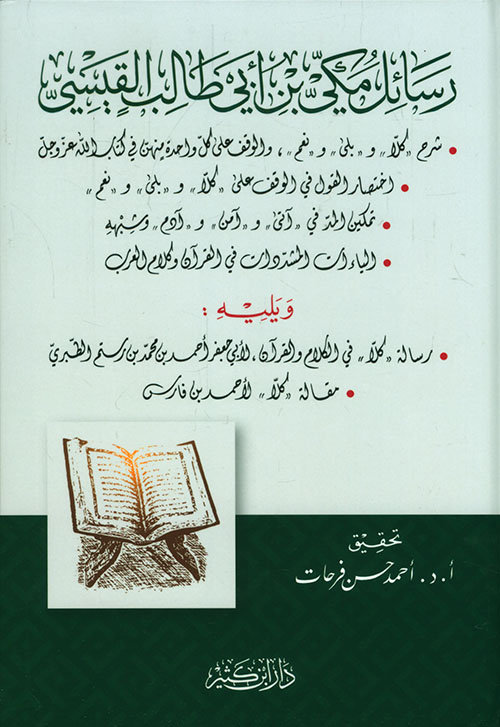 رَسَائِل مَكِّيّ بْن أَبِي طَالِب القَيْسِيّ
• شرح «كلّا» و «بلى» و «نعم»، والوقف على كلّ واحدة منهن في كتاب الله عزّ وجل
• اختصار القول في الوقف على «كلّا» و «بلى» و «نعم»
• تمكين المدّ في «آتى» و «آمن» و «آدم» وشبهه
• الياءات المشدّدات في القرآن وكلام العرب
وَيَلِيْهِ :
• رسالة «كلّا» في الكلام والقرآن، لأبي جعفر أحمد بن محمّد بن رستم الطبريّ
• مقالة «كلّا» لأحمد بن فارس
تحقيق
أ. د. أحمد حسن فرحات
دار ابن كثير